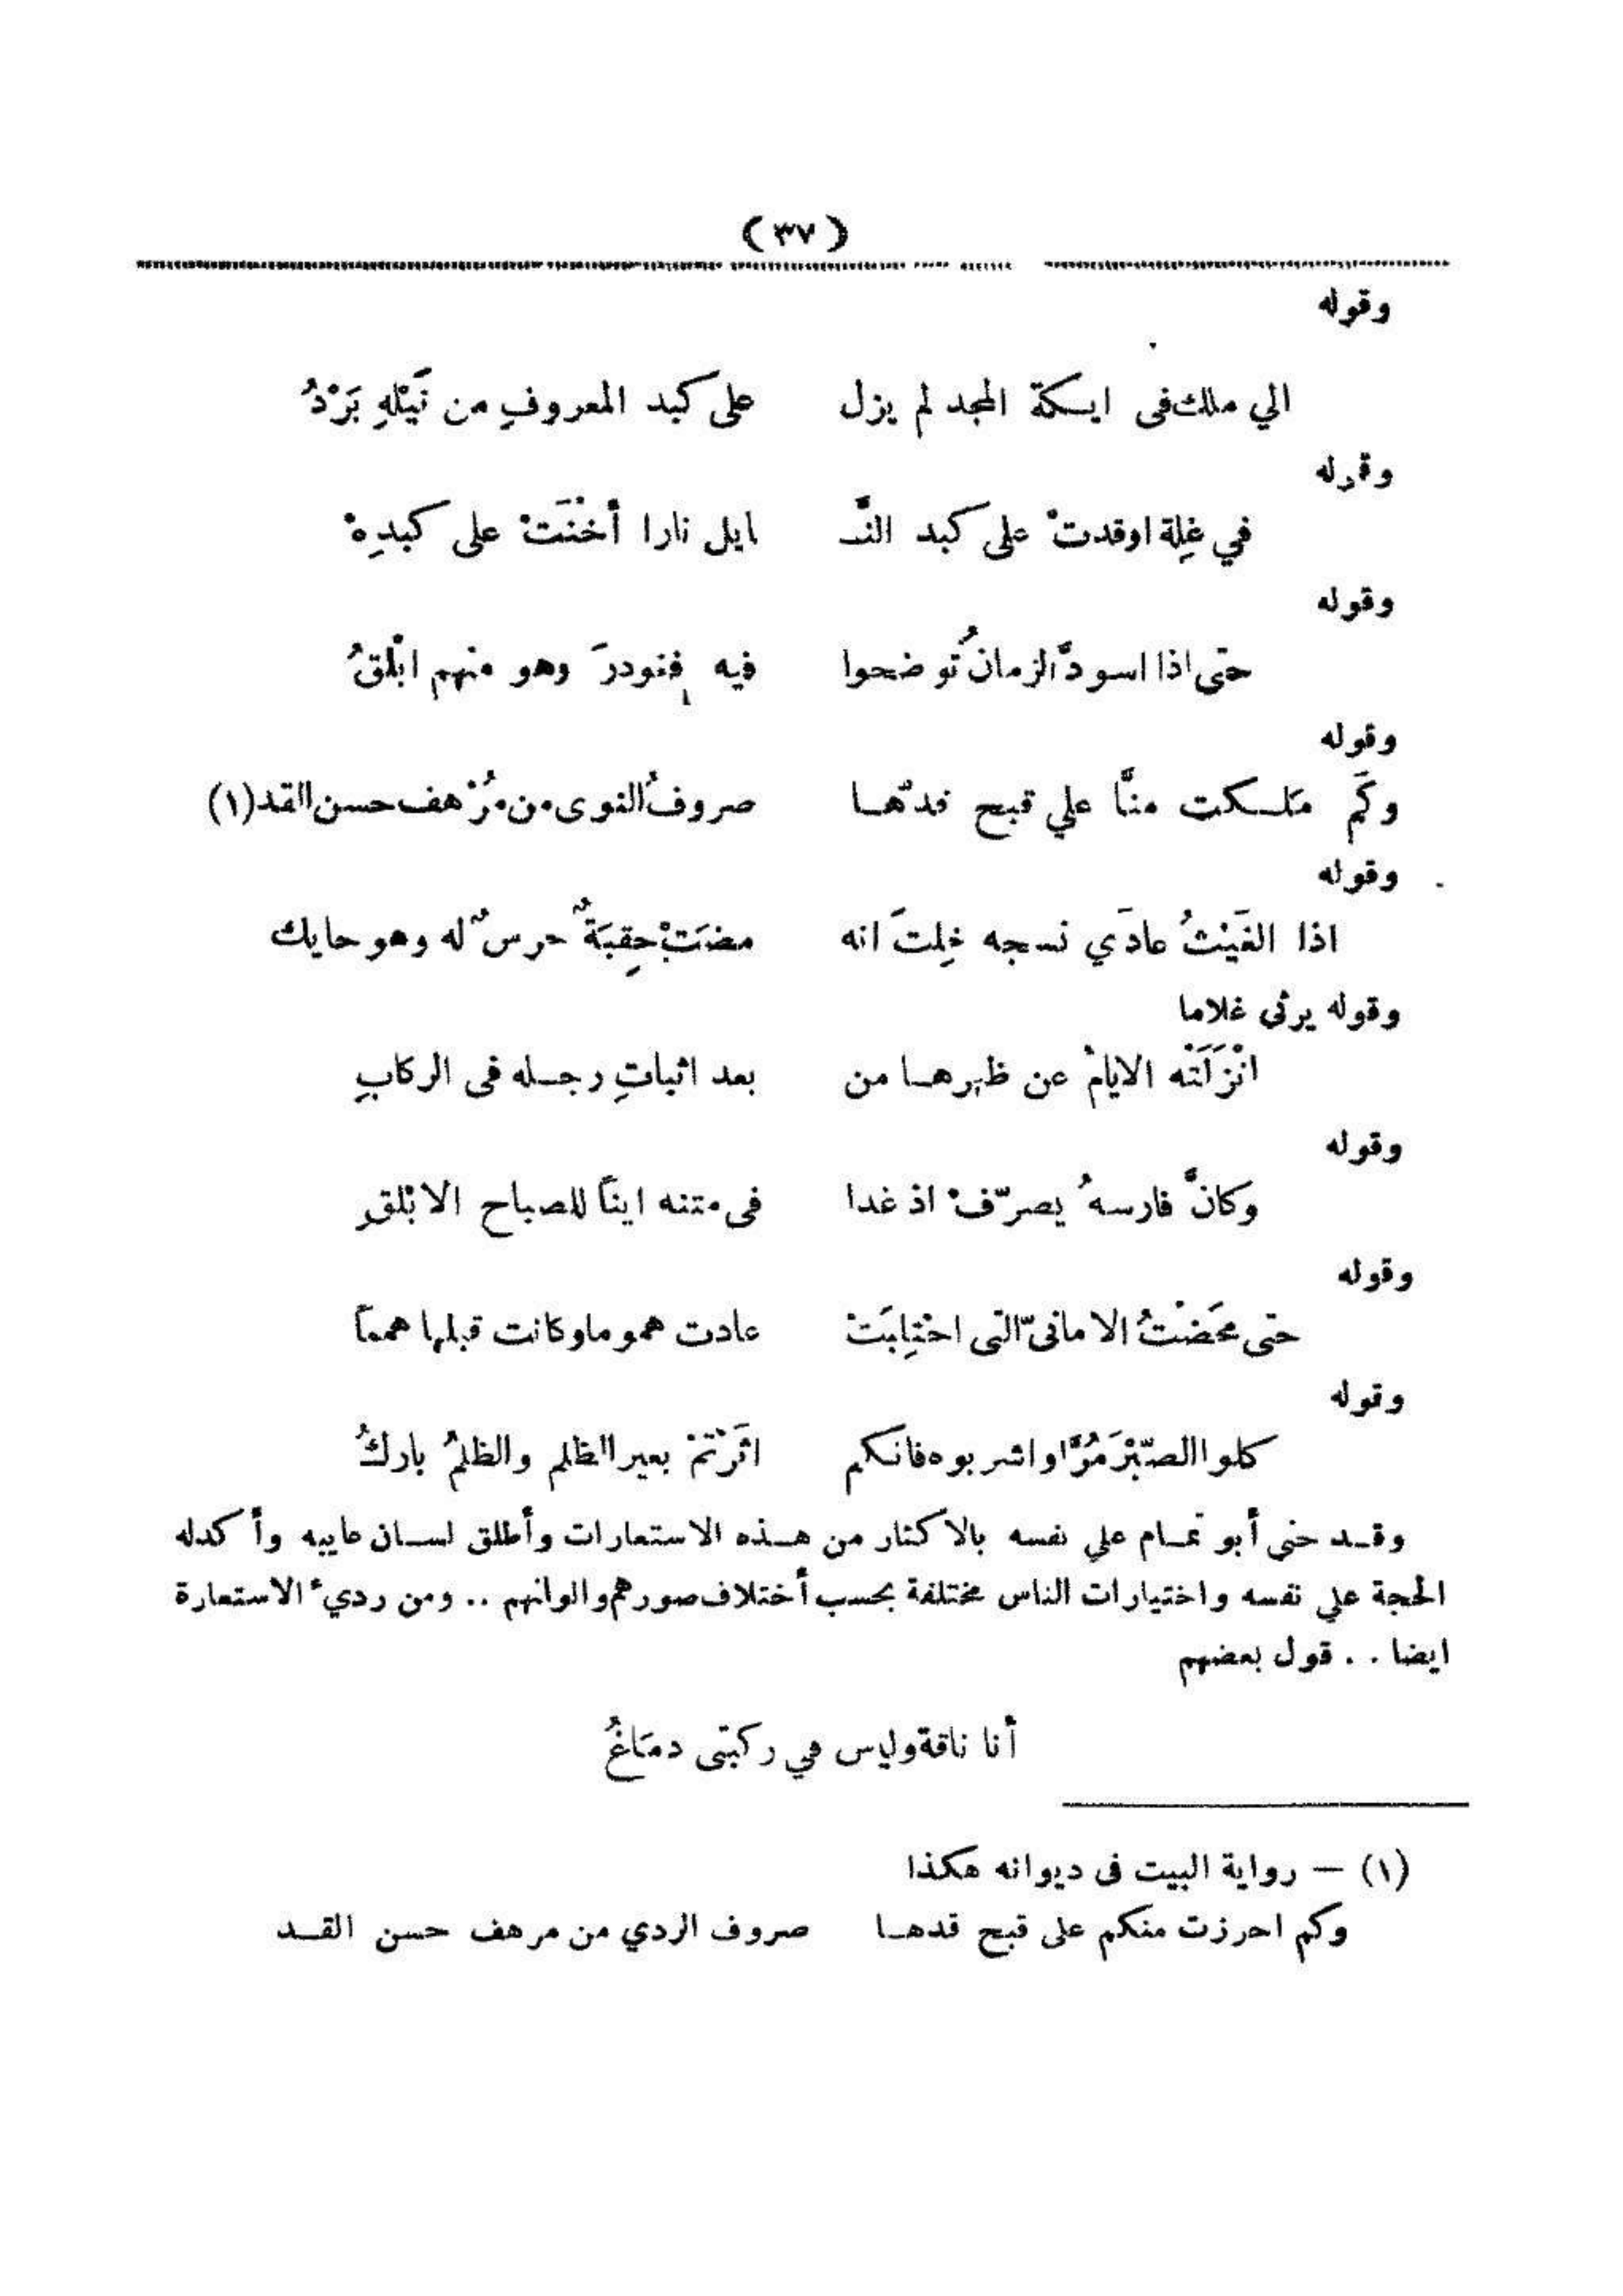 ( ٣٧ )
وقوله
الي ملك فى ايكة المجد لم يزل على كبد المعروفِ من نَيْلهِ بَرْدُ
وقوله
في غِلة اوقدتْ على كبد النَّـ ـايل نارا أخْنَتَْ على كبدِهْ
وقوله
حتى اذا اسودَّ الزمانُ تُوضحوا فيه فغودرَ وهو منهم ابْلقُ
وقوله
وكَم مَلكت منَّا علي قبح قدّها صروفُ النوى من مُرْهف حسن القد (١)
وقوله
اذا الغَيْثُ عادَي نسجه خِلتَ انه مضَتْ حِقبَةٌ حرسٌ له وهو حايك
وقوله يرثى غلاما
انْزَلَتْه الايامُ عن ظهرها من بعد اثباتِ رجله فى الركابِ
وقوله
وكانَّ فارسهُ يصرّفُ اذ غدا فى متنه ايناً للصباح الابْلقِ
وقوله
حتى محَضْتُ الامانىّ التى احْتِلبَتْ عادت هموما وكانت قبلها همماً
وقوله
كلوا الصّبْرَ مُرًّا واشربوه فانكم اثَرْتمْ بعير الظلم والظلمُ باركُ
وقد جنى أبو تمام علي نفسه بالاكثار من هذه الاستعارات وأطلق لسان عايبه وأكد له
الحجة على نفسه واختيارات الناس مختلفة بحسب أختلاف صورهم والوانهم .. ومن ردىء الاستعارة
ايضا .. قول بعضهم
أنا ناقة وليس في ركبتى دمَاغُ
(١) — رواية البيت فى ديوانه هكذا
وكم احرزت منكم على قبح قدها صروف الردي من مرهف حسن القد